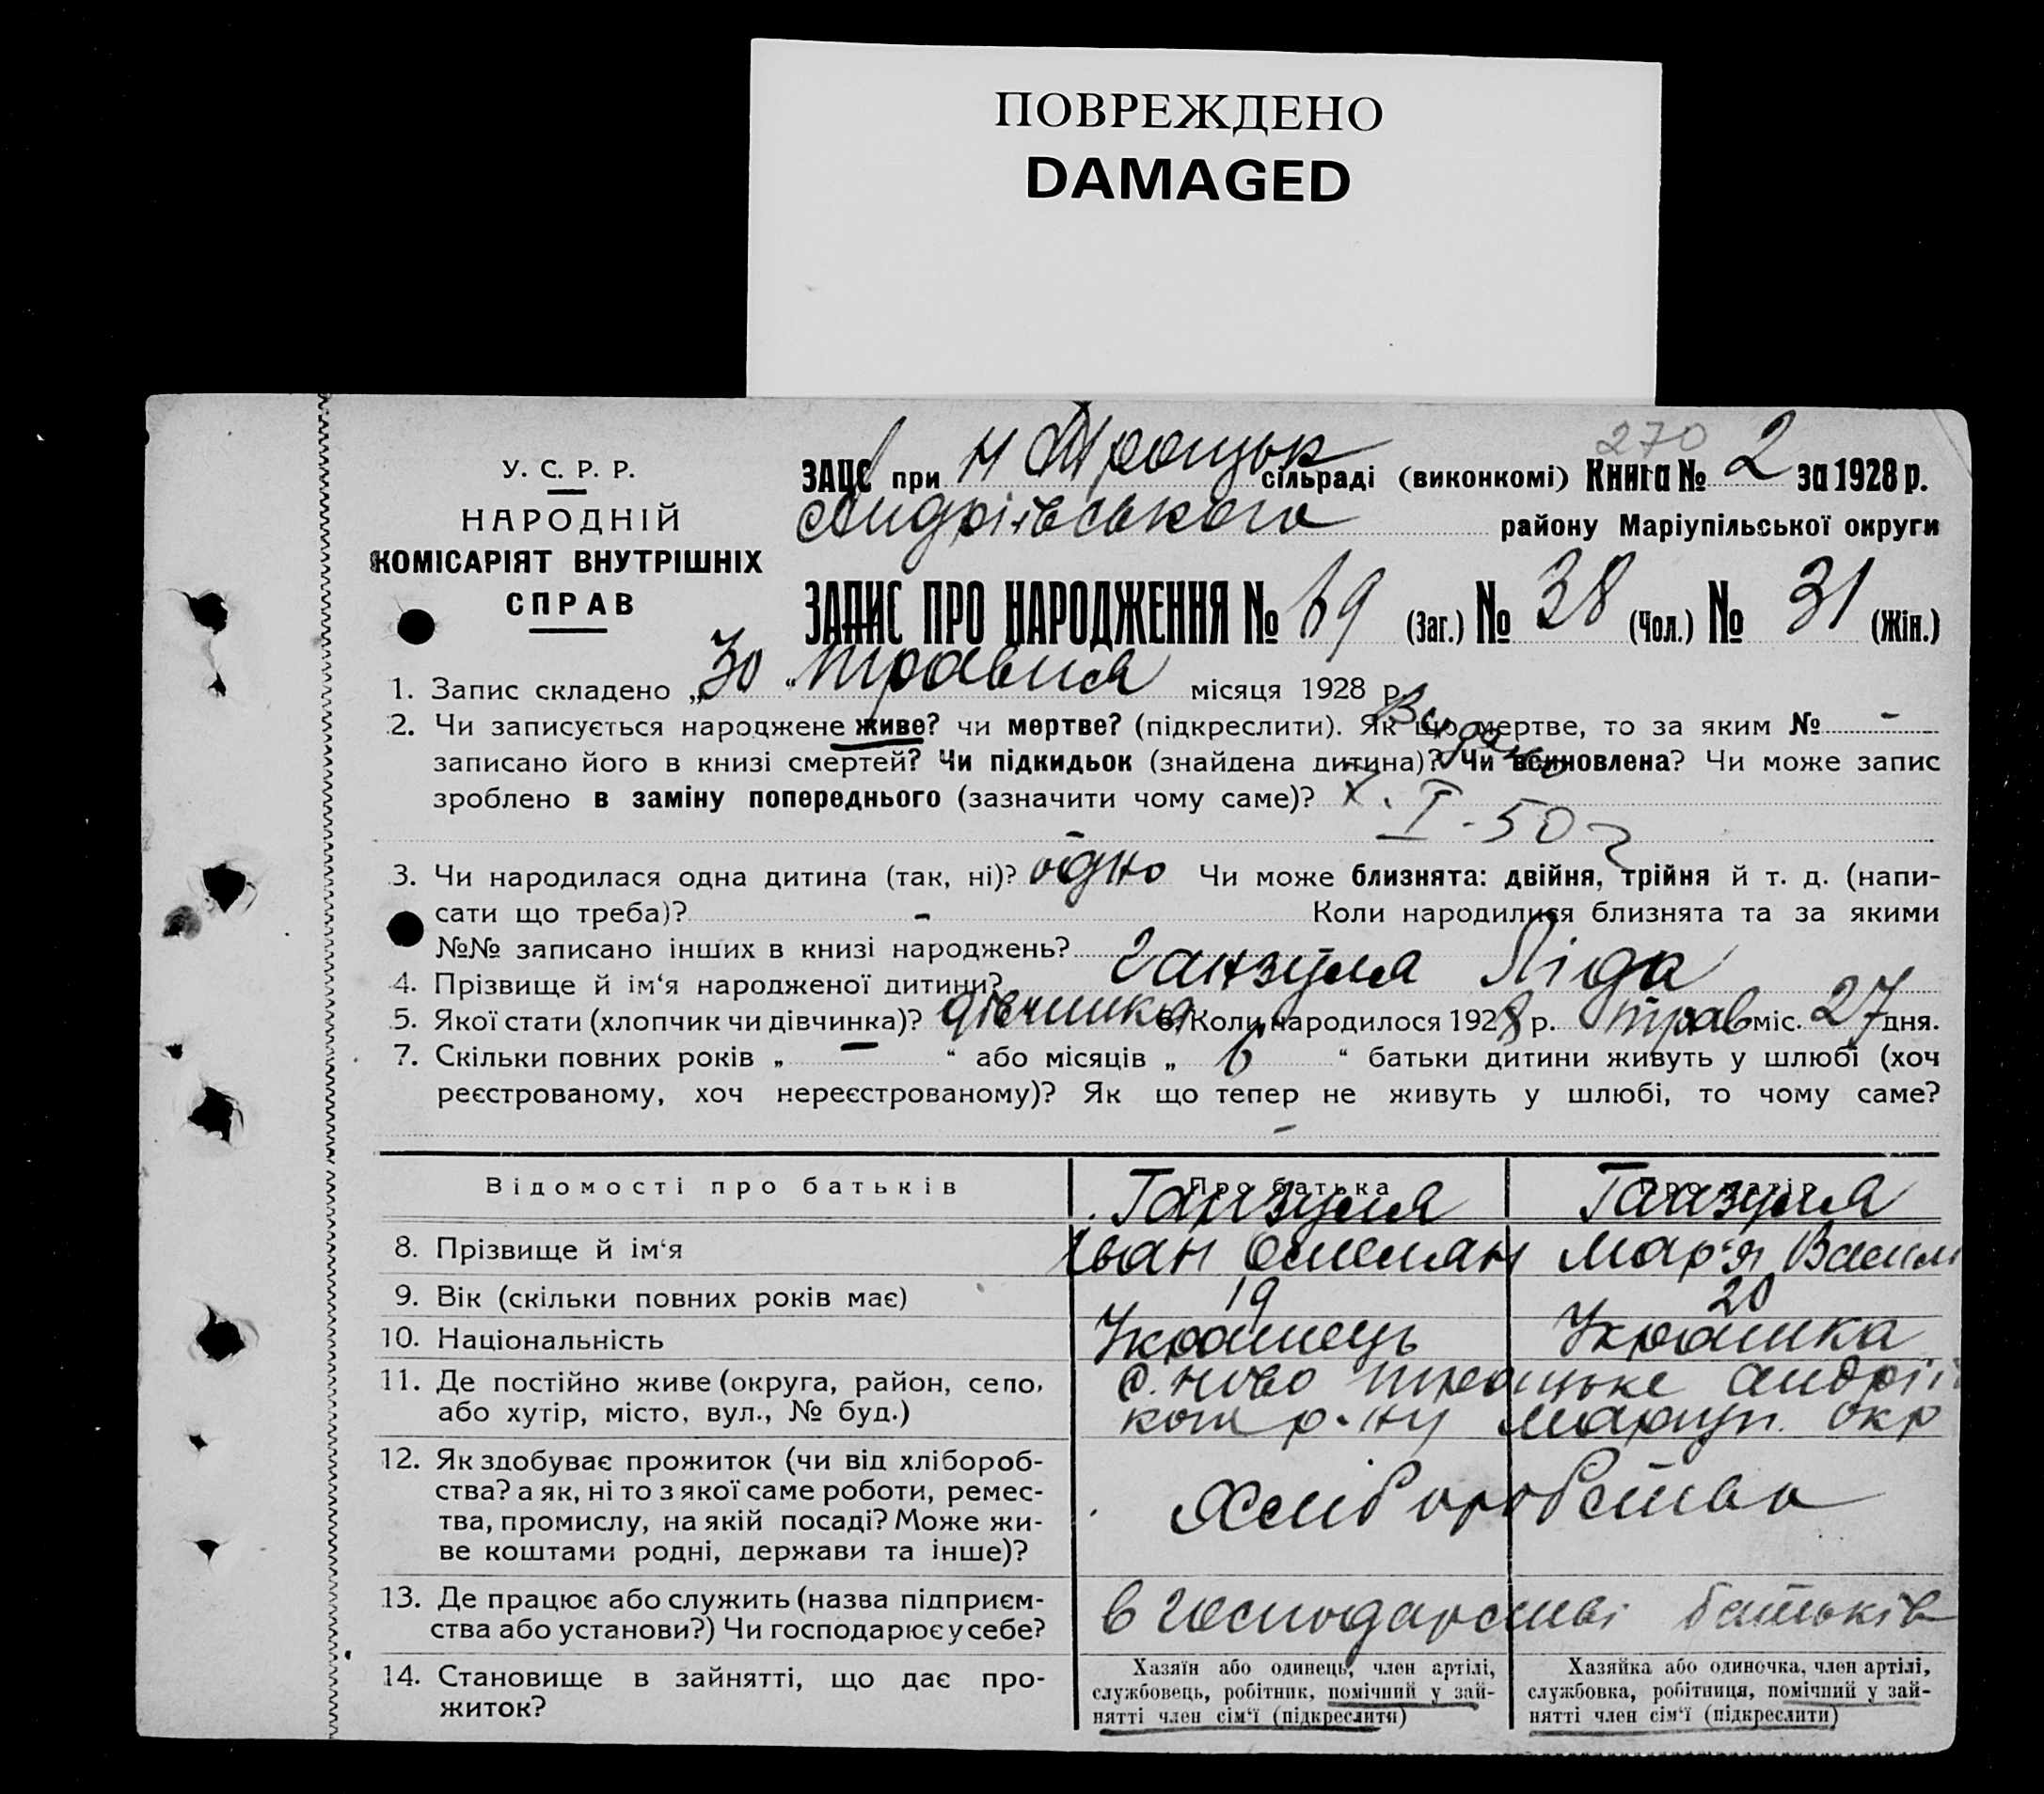 ПОВРЕЖДЕНО
DAMAGED
270
У. С. Р. Р.
НАРОДНІЙ
КОМІСАРІЯТ ВНУТРІШНІХ
СПРАВ
ЗАЦС при Н Троцьк сільраді (виконкомі) Книга № 2 за 1928 р.
Андріївського району Маріупільської округи
ЗАПИС ПРО НАРОДЖЕННЯ № 69 (Заг.) № 38 (Чол.) № 31 (Жін.)
1. Запис складено „30“ травня місяця 1928 р.
2. Чи записується народжене живе? чи мертве? (підкреслити). Як що мертве, то за яким № -
записано його в книзі смертей? Чи підкидьок (знайдена дитина)? Чи всиновлена? Чи може запис
зроблено в заміну попереднього (зазначити чому саме)?
I. 50 г
3. Чи народилася одна дитина (так, ні)? одно Чи може близнята: двійня, трійня й т. д. (напи-
сати що треба)? - Коли народилися близнята та за якими
№№ записано інших в книзі народжень?
4. Прізвище й ім‘я народженої дитини? Ганзуля Ліда
5. Якої стати (хлопчик чи дівчинка)? дівчинка 6. Коли народилося 1928 р. трав міс. 27 дня.
7. Скільки повних років „ — “ або місяців „ 6 “ батьки дитини живуть у шлюбі (хоч
реєстрованому, хоч нереєстрованому)? Як що тепер не живуть у шлюбі, то чому саме?
-
Відомості про батьків Про батька Про матір
Ганзуля Ганзуля
8. Прізвище й ім‘я Іван Омелян Мар‘я Васил
9. Вік (скільки повних років має) 19 20
10. Національність Українець Українка
11. Де постійно живе (округа, район, село, с. Ново Троцьке Андрії
або хутір, місто, вул., № буд.) р-ну Маріуп. окр
12. Як здобуває прожиток (чи від хлібороб-
ства? а як, ні то з якої саме роботи, ремес-
тва, промислу, на якій посаді? Може жи-
ве коштами родні, держави та інше)?
Хліборобство
13. Де працює або служить (назва підприєм-
ства або установи?) Чи господарює у себе?
в господарстві батьків
14. Становище в зайнятті, що дає про-
житок?
Хазяїн або одинець, член артілі,
службовець, робітник, помічний у зай-
нятті член сім‘ї (підкреслити)
Хазяйка або одиночка, член артілі,
службовка, робітниця, помічний у зай-
нятті член сім‘ї (підкреслити)